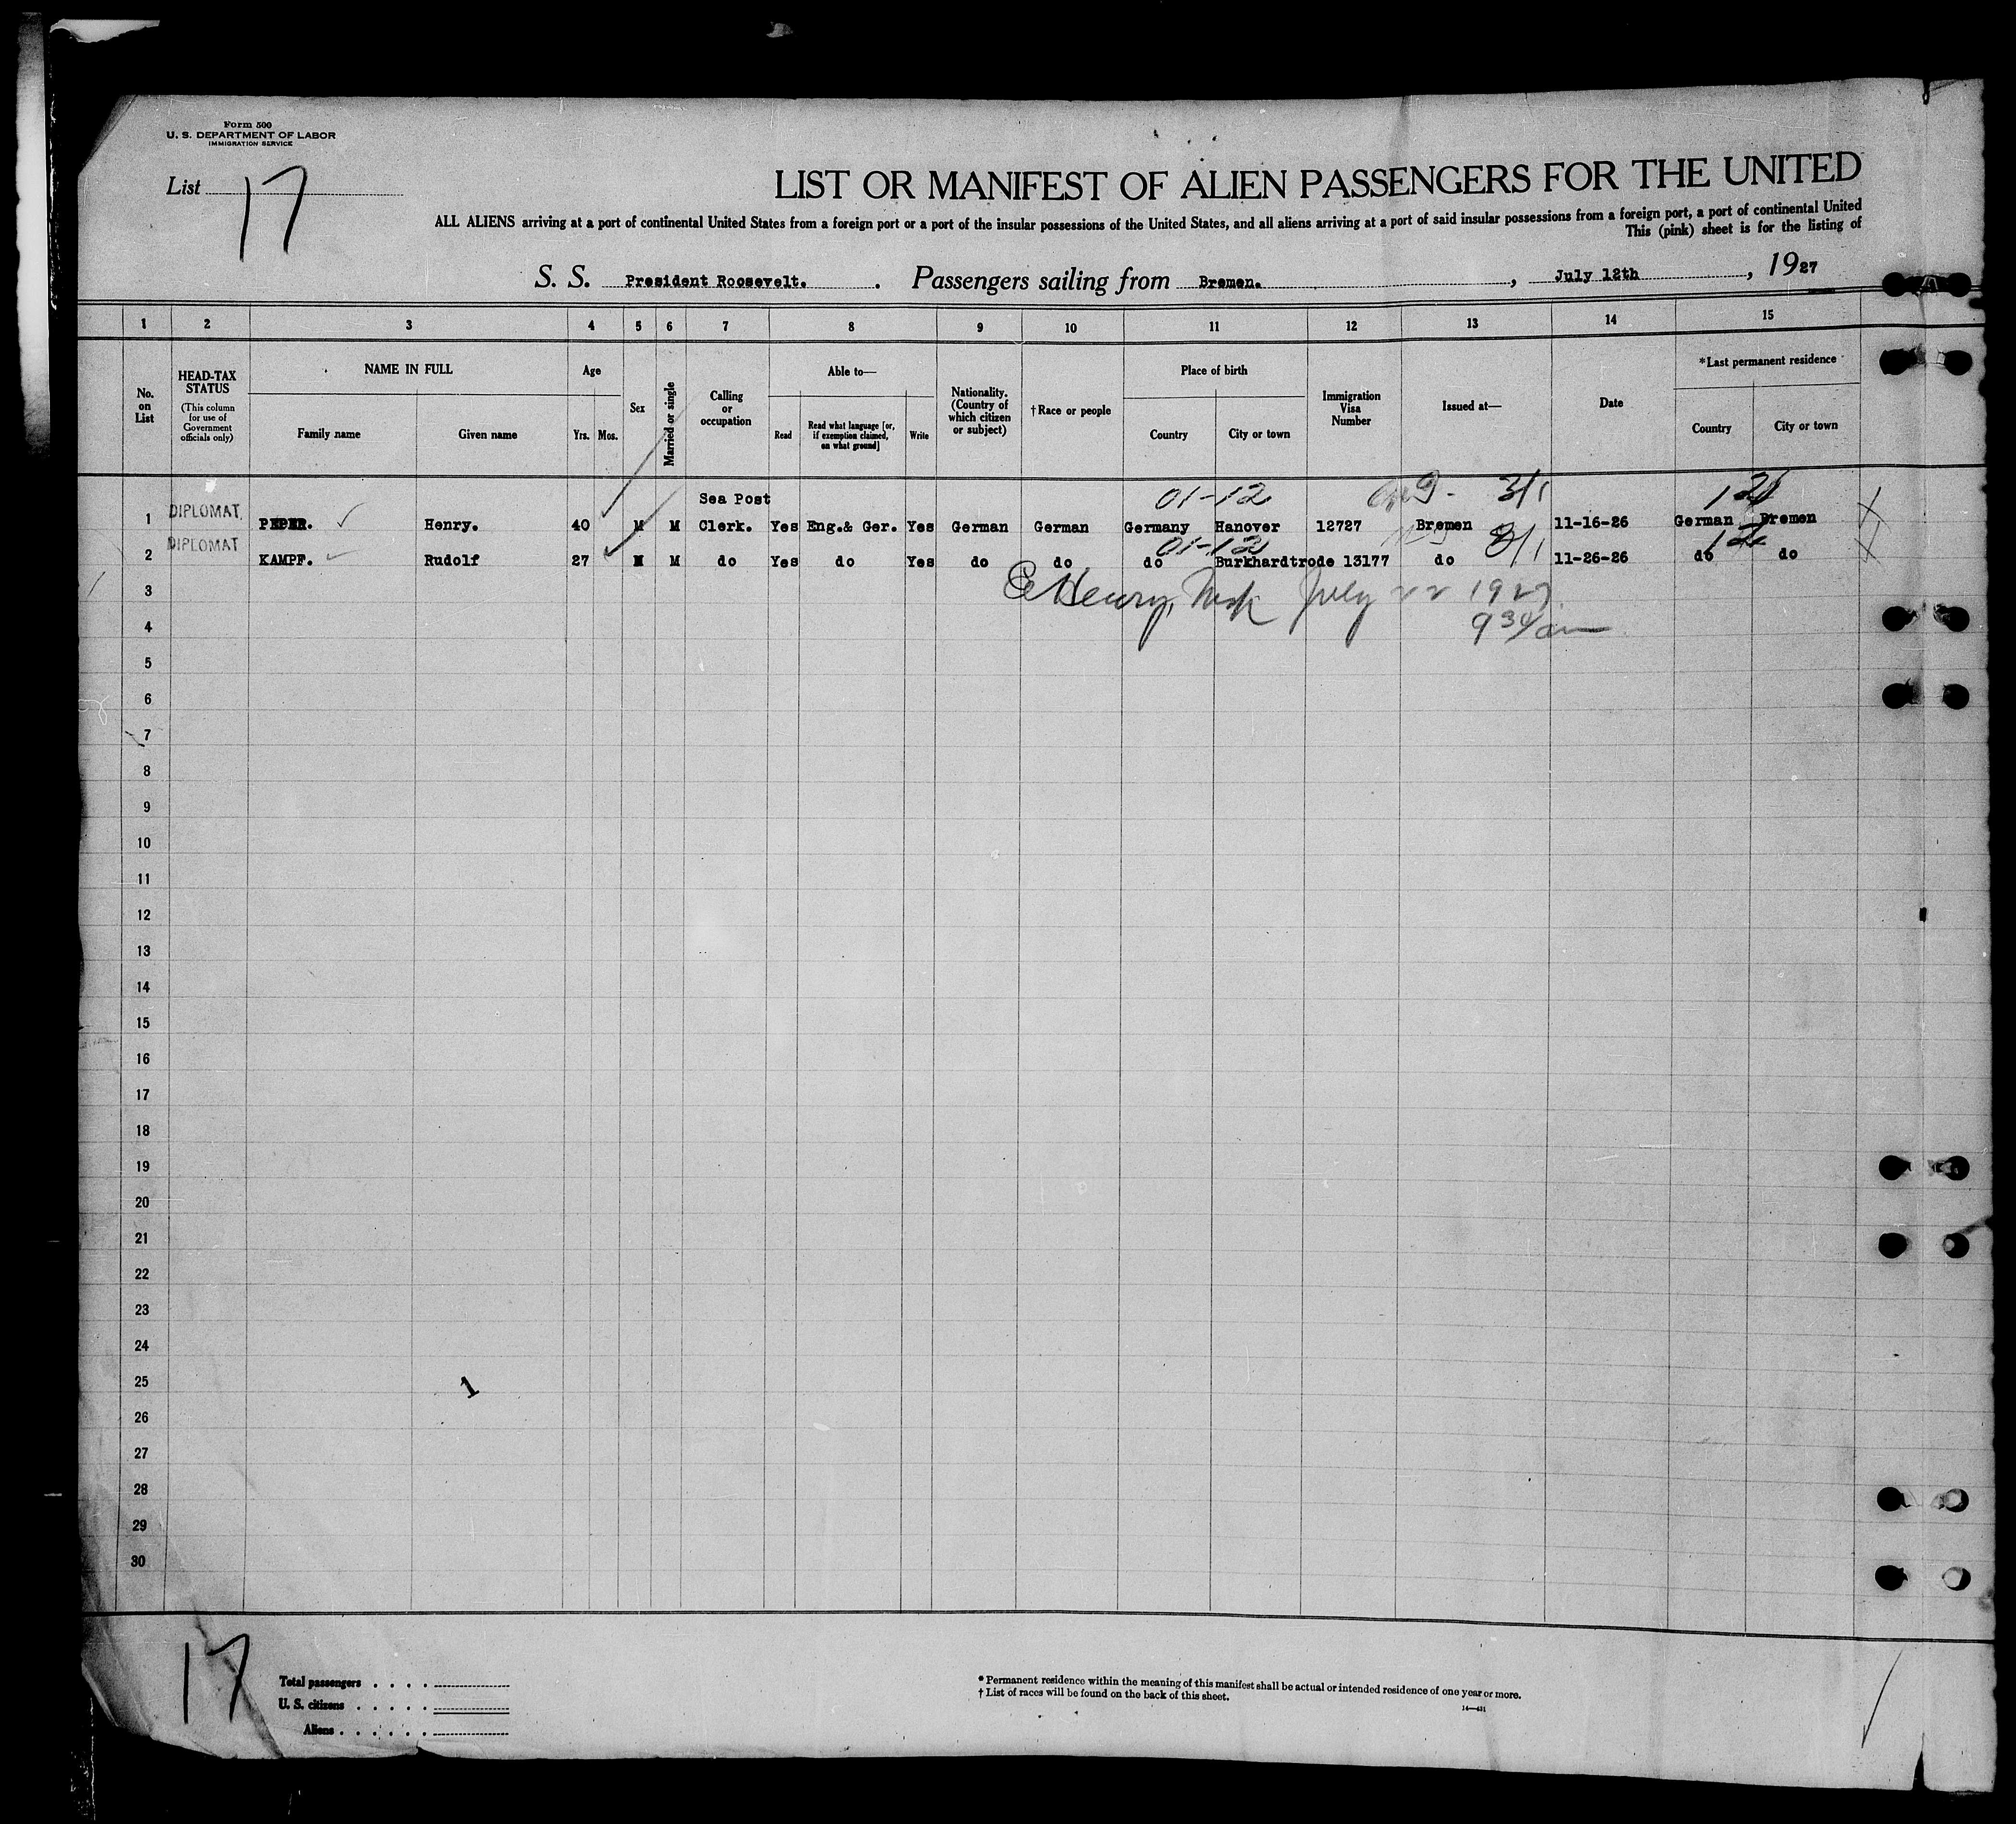 Form 500
U. S. DEPARTMENT OF LABOR
IMMIGRATION SERVICE
List 17
LIST OR MANIFEST OF ALIEN PASSENGERS FOR THE UNITED
ALL ALIENS arriving at a port of continental United States from a foreign port or a port of the insular possessions of the United States, and all aliens arriving at a port of said insular possessions from a foreign port, a port of continental United
This (pink) sheet is for the listing of
S. S. President Roosevelt. . Passengers sailing from Bremen. , July 12th , 1927
1 2 3 4 5 6 7 8 9 10 11 12 13 14 15
No. on List
HEAD-TAX STATUS
(This column for use of Government officials only)
NAME IN FULL
Family name Given name
Age
Yrs. Mos.
Sex
Married or single
Calling or occupation
Able to—
Read
Read what language [or, if exemption claimed, on what ground]
Write
Nationality. (Country of which citizen or subject)
† Race or people
Place of birth
Country City or town
Immigration Visa Number
Issued at—
Date
*Last permanent residence
Country City or town
Sea Post 01-12 3/1
1 DIPLOMAT PEPER. Henry. 40 M M Clerk. Yes Eng.& Ger. Yes German German Germany Hanover 12727 Bremen 11-16-26 German Bremen
01-12 3/1
2 DIPLOMAT KAMPF. Rudolf 27 M M do Yes do Yes do do do Burkhardtrode 13177 do 11-26-26 do do
3 Henry, July 22 1927
4 9 30/am
5
6
7
8
9
10
11
12
13
14
15
16
17
18
19
20
21
22
23
24
25
1
26
27
28
29
30
17
Total passengers . . . .
U. S. citizens . . . . .
Aliens . . . . . .
* Permanent residence within the meaning of this manifest shall be actual or intended residence of one year or more.
† List of races will be found on the back of this sheet.
14—431